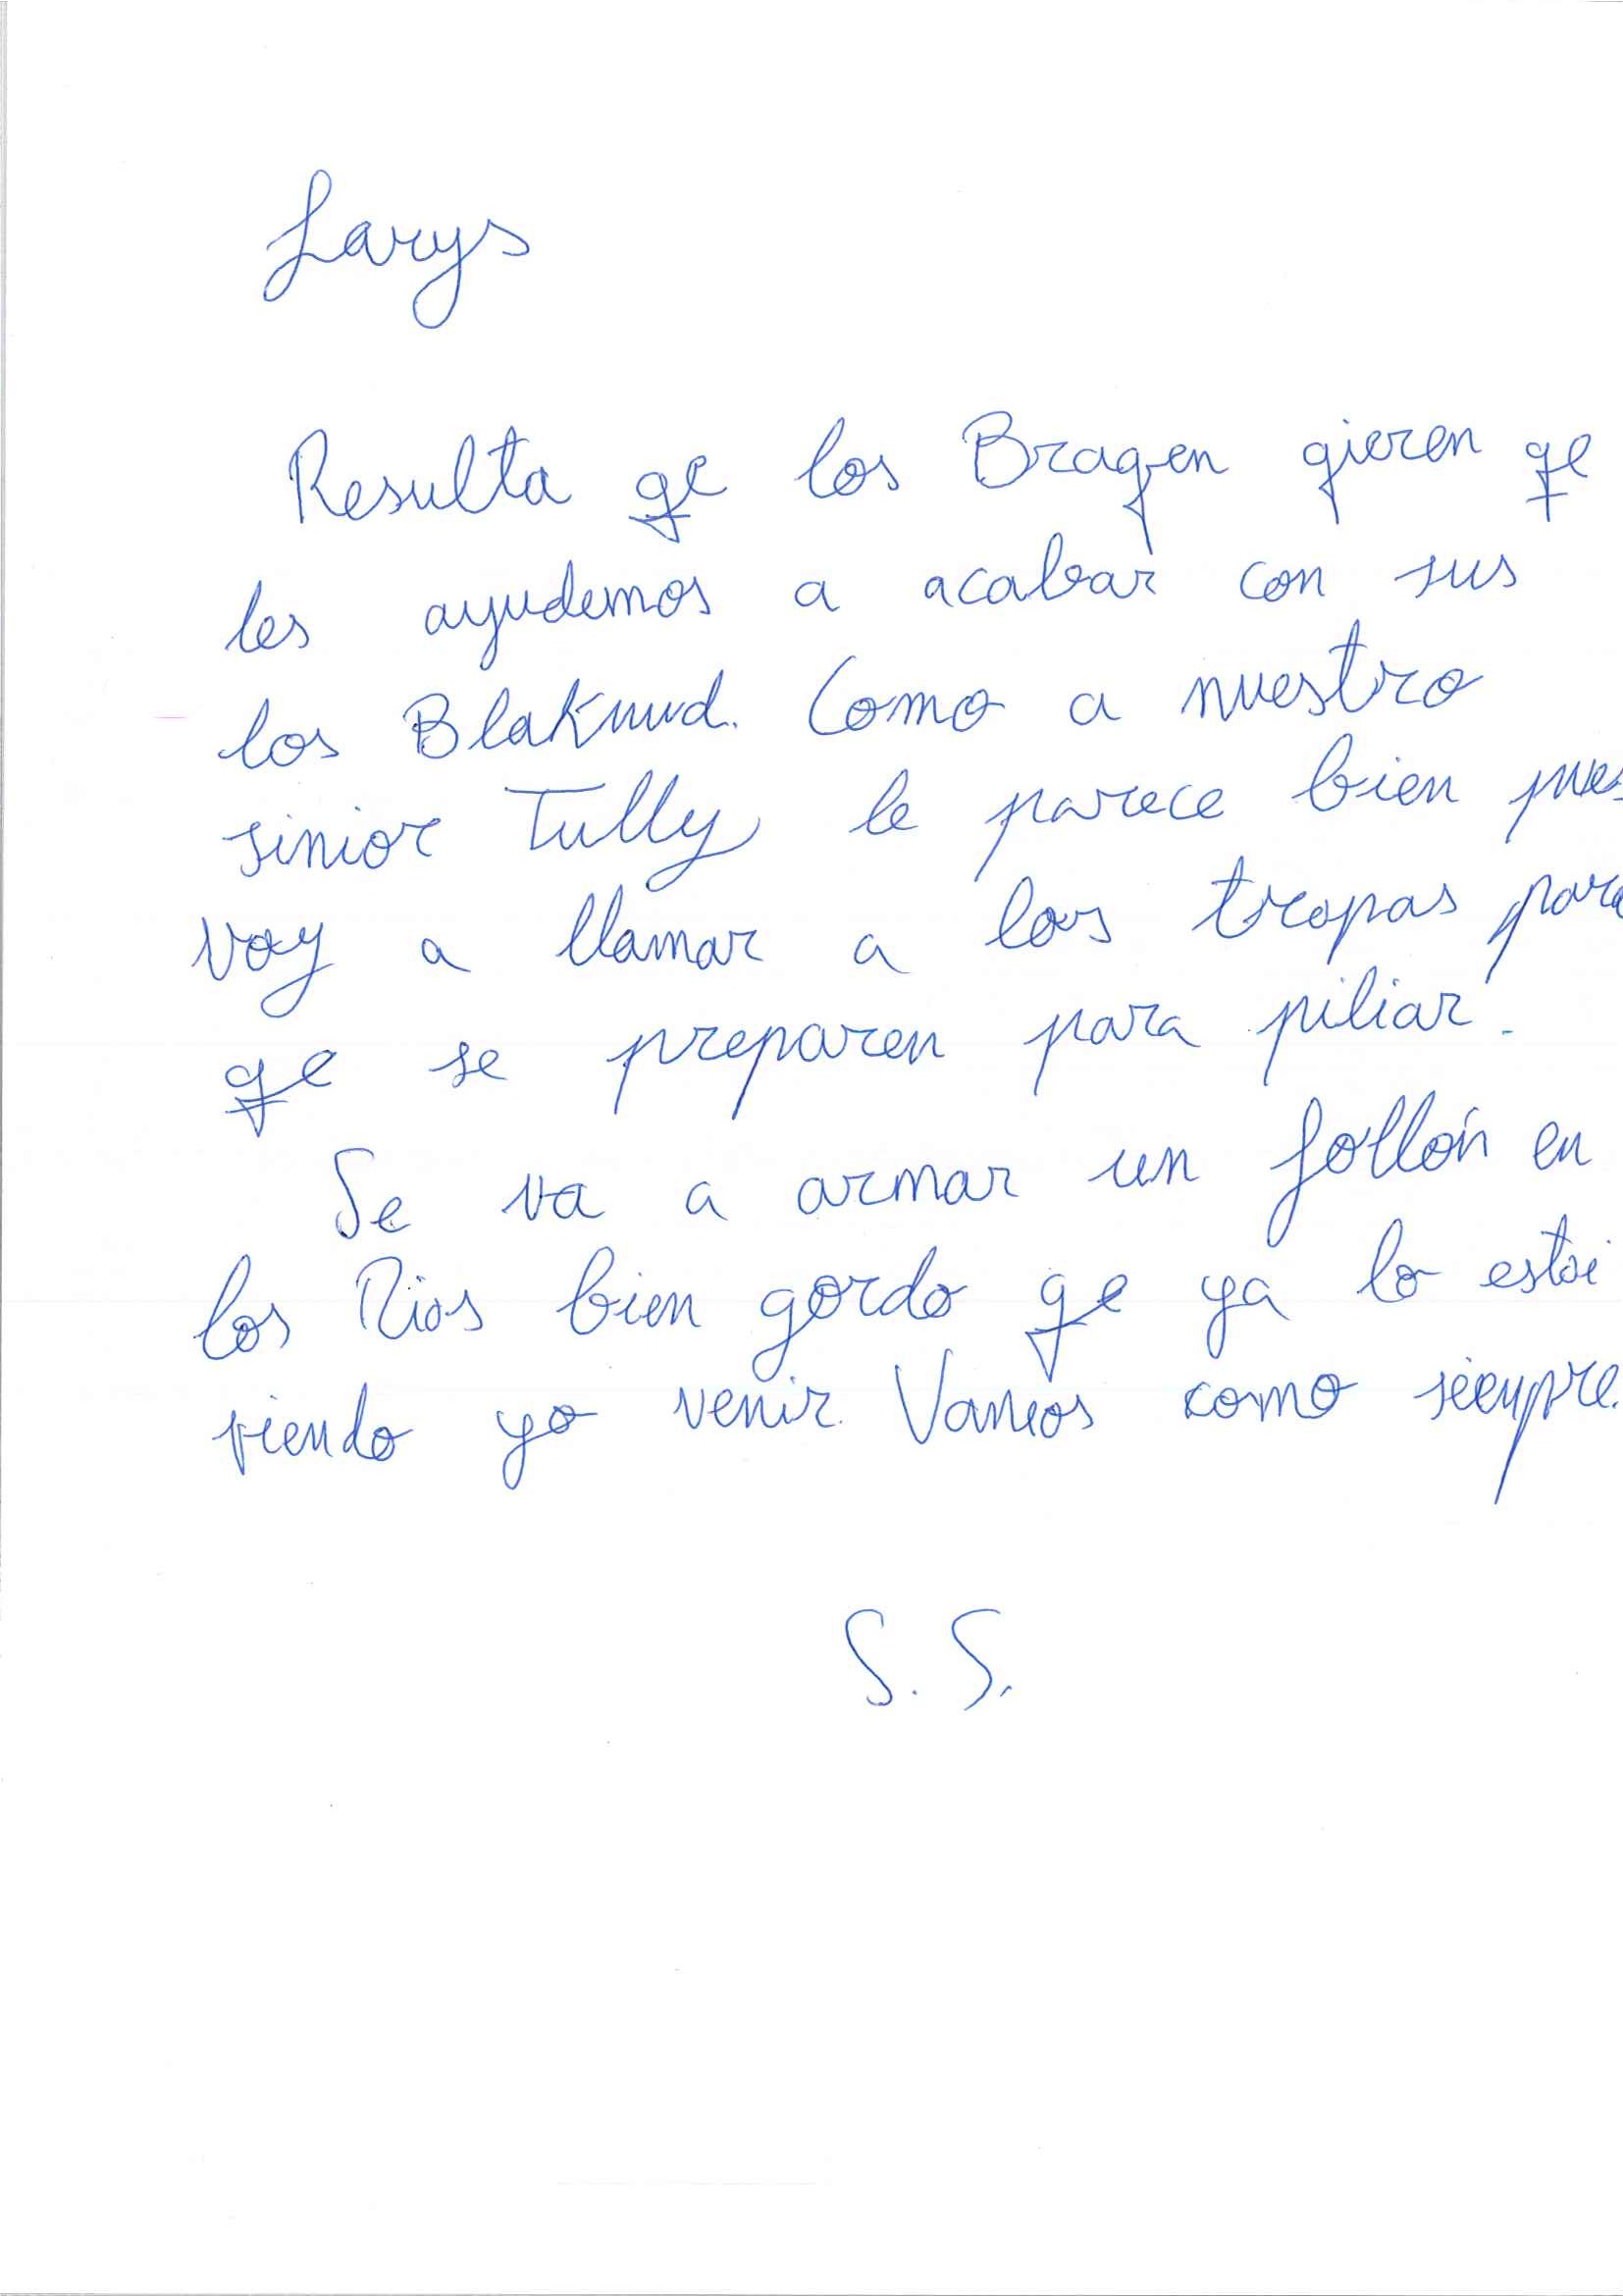 Larys
Resulta qe los Bragen qieren qe
les ayudemos a acabar con sus
los Blakwud. Como a nuestro
sinior Tully le parece bien pues
voy a llamar a las tropas para
qe se preparen para piliar.
Se va a armar un follón en
los Rios bien gordo qe ya lo estoi
viendo yo venir. Vamos como siempre.
S. S.